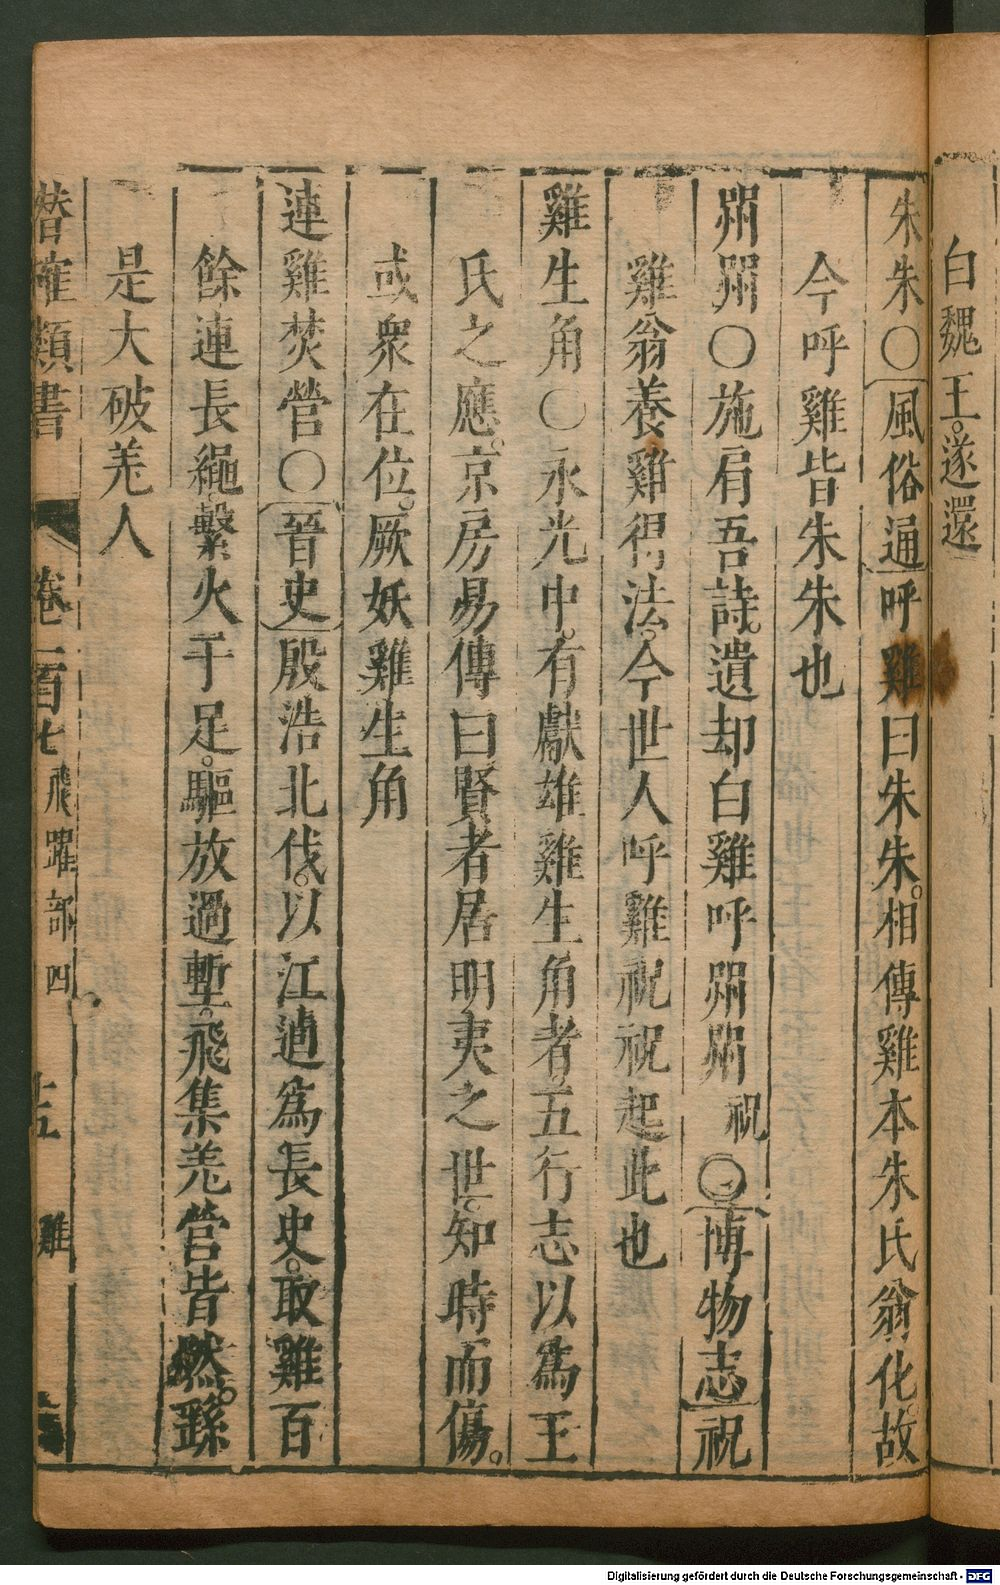 白魏王。遂還
朱朱〇風俗通呼雞曰朱朱。相傳雞本朱氏翁化。故
今呼雞皆朱朱也
喌喌〇施肩吾詩。遺却白雞呼喌喌祝〇博物志祝
雞翁養雞得法。今世人呼雞祝祝起此也
雞生角〇永光中。有獻雄雞生角者。五行志以為王
氏之應。京房易傳曰賢者居明夷之世。知時而傷。
或衆在位。厥妖雞生角
連雞焚營〇晉史殷浩北伐。以江逌為長史。取雞百
餘連長繩繫火于足。驅放過塹。飛集羌營皆燃。
是大破羌人
潛確類書 卷一百七 飛躍部四 十五 雞
Digitalisierung gefördert durch die Deutsche Forschungsgemeinschaft - DFG